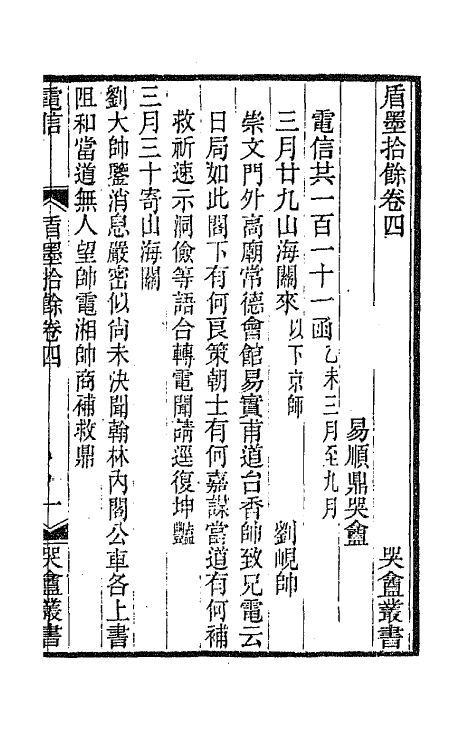 盾墨拾餘卷四　　　　　　　哭盦叢書
易順鼎哭盦
電信共一百一十一函乙未三月至九月
三月廿九山海關來以下京師　　　　劉峴帥
崇文門外高廟常德會館易實甫道台香帥致兄電云
日局如此閣下有何良策朝士有何嘉謀當道有何補
救祈速示洞儉等語合轉電聞請逕復坤豔
三月三十寄山海關
劉大帥鑒消息嚴密似尚未決聞翰林內閣公車各上書
阻和當道無人望帥電湘帥商補救鼎
電信　盾墨拾餘卷四　一　哭盦叢書